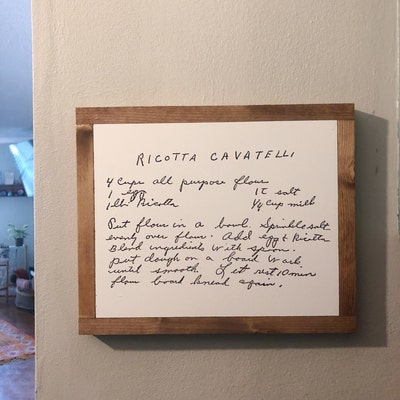 RICOTTA CAVATELLI
4 Cups all purpose flour
1 egg 1t salt
1 lb Ricotta 1/4 Cup milk
Put flour in a bowl. Sprinkle salt
evenly over flour. Add egg & Ricotta
Blend ingredients with spoon.
put dough on a board work
until smooth. Let rest 10 min
flour board knead again.